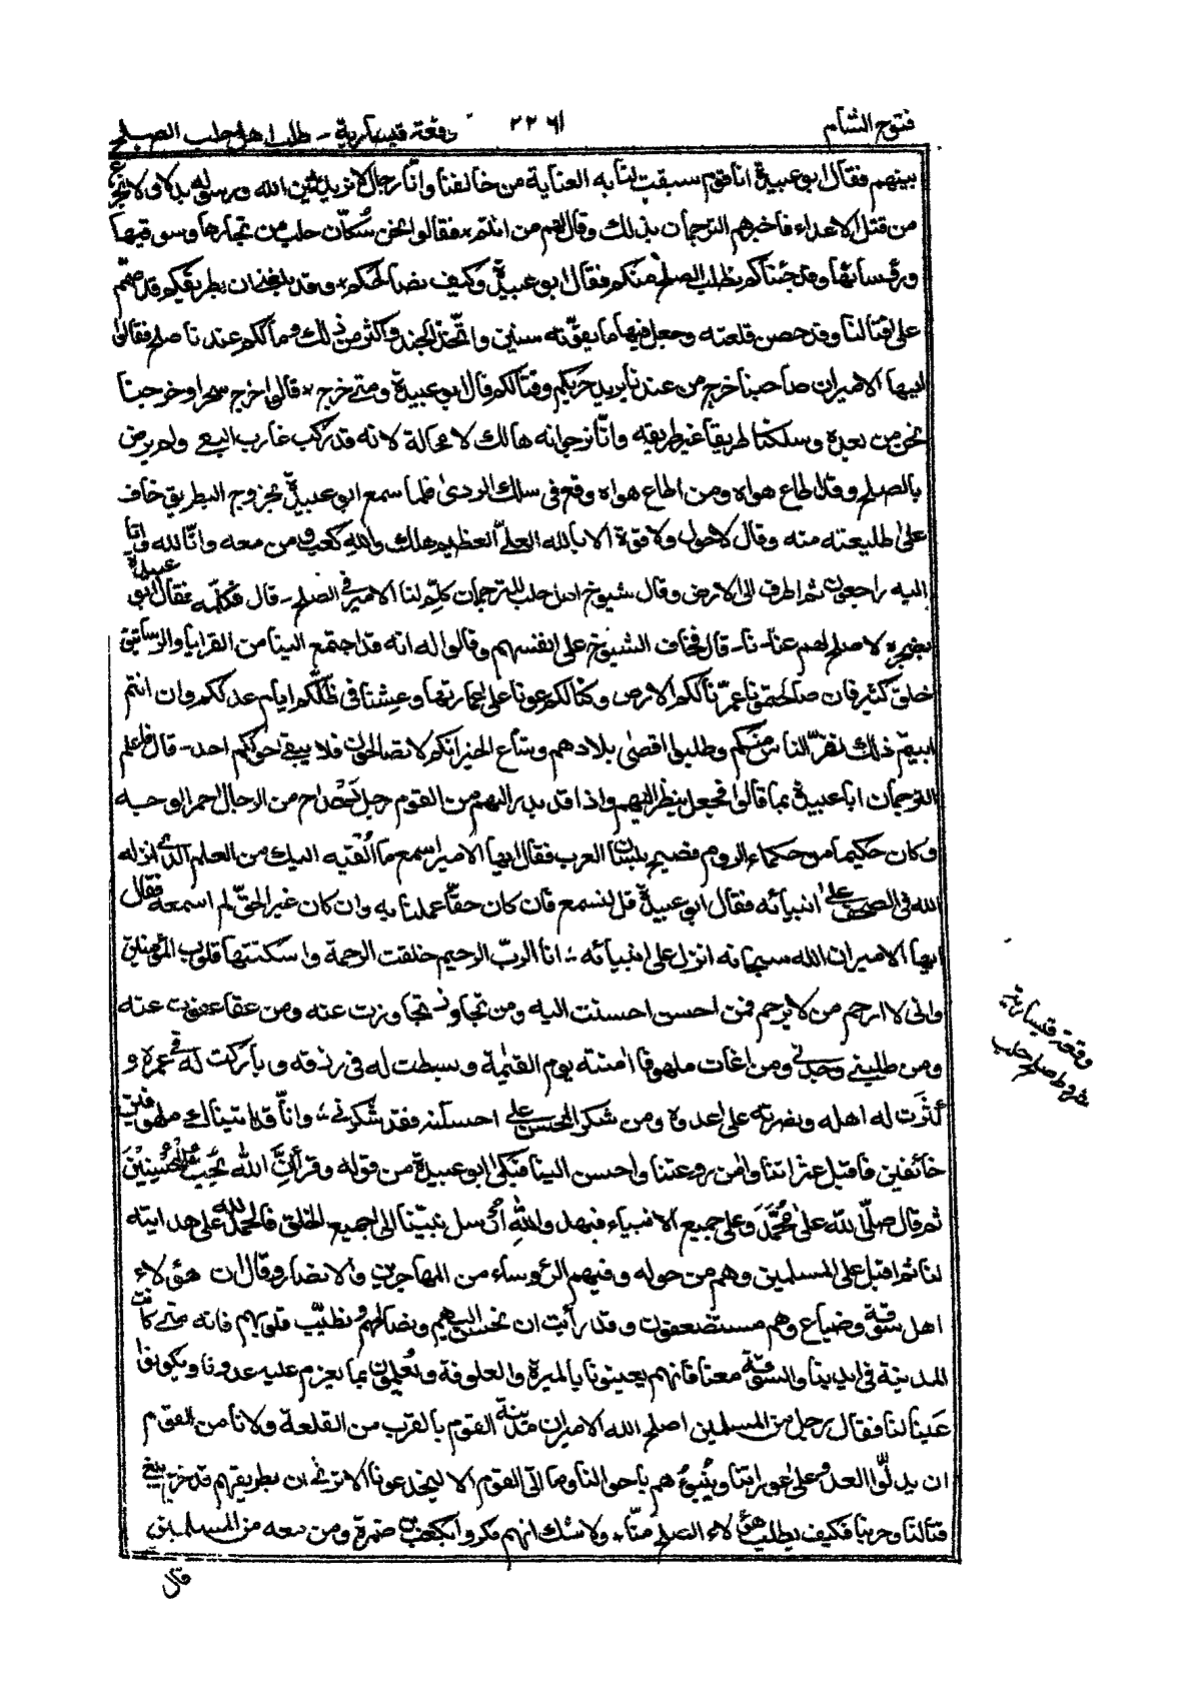 فتوح الشام
٢٢٦
وقعة قيسارية - طلب اهل حلب الصلح
بينهم فقال ابو عبيدة انا قوم سبقت لنا به العناية من خالفنا وانّا رجال لا نريد غير الله ورسوله بدلا ولا نجزع
من قتل الاعداء فاخبرهم الترجمان بذلك وقال لهم من انتم فقالوا نحن سُكّان حلب من تجارها وسوقيها
ورؤسائها وقد جئناكم نطلب الصلح منكم فقال ابو عبيدة وكيف نصالحكم وقد بلغني ان بطريقكم قد صمّم
على قتالنا وقد حصن قلعته وجعل فيها ما يقوّته سنين واتّخذ الجند واكثر من ذلك وما لكم عندنا صلح فقالوا
ايها الامير ان صاحبنا خرج من عندنا يريد حربكم وقتالكم قال ابو عبيدة ومتى خرج قالوا خرج سحرا وخرجنا
نحن من بعده وسلكنا طريقا غير طريقه وانّا نرجوا انه هالك لا محالة لانه قد ركب غارب البغي ولم يرض
بالصلح وقد اطاع هواه ومن اطاع هواه وقع في سلك الردى فلما سمع ابو عبيدة بخروج البطريق خاف
على طليعته منه وقال لا حول ولا قوة الا بالله العلىّ العظيم هلك والله كعب ومن معه وانّا لله وانّا
اليه راجعون ثم اطرق الى الارض وقال شيوخ اهل حلب للترجمان كلّم لنا الامير في الصلح - قال فكلّمه فقال ابو عبيدة
بضجره لا صلح لهم عندنا - قال فخاف الشيوخ على انفسهم وقالوا له انه قد اجتمع الينا من القرايا والرساتيق
خلق كثير فان صالحتمونا عمّرنا لكم الارض وكنا لكم عونا على عمارتها وعِشنا في ظلّكم ايام عدلكم وان انتم
ابيتم ذلك نفرّ الناس منكم وطلبوا اقصى بلادهم وشاع الخبر انكم لا تصالحون فلا يبقى حولكم احد - قال فاعلم
الترجمان ابا عبيدة بما قالوا فجعل ينظر اليهم واذا قد بدر اليهم من القوم رجل دَحْدَاح من الرجال احمر الوجه
وكان حكيما من حكماء الروم فصيح بلسان العرب فقال ايها الامير اسمع ما اُلقيه اليك من العلم الذى انزله
الله في الصحف على انبيائه فقال ابو عبيدة قل لنسمع فان كان حقّا عملنا به وان كان غير الحقّ لم اسمعه فقال
ايها الامير ان الله سبحانه انزل على انبيائه ؛ انا الربّ الرحيم خلقت الرحمة واسكنتها قلوب المؤمنين
وانى لا ارحم من لا يرحم فمن احسن احسنت اليه ومن تجاوز تجاوزت عنه ومن عفا عفوت عنه
ومن طلبني وجدني ومن اغاث ملهوفا امنته يوم القيٰمة وبسطت له في رزقه وباركت له في عمره و
كثرت له اهله ونصرته على عدوه ومن شكر المحسن على احسانه فقد شكرني ؛ وانّا قد اتيناك ملهوفين
خائفين فاقبل عثراتنا وامن روعتنا واحسن الينا فبكى ابو عبيدة من قوله وقرأ اِنَّ اللهَ يُحِبُّ الْمُحْسِنِيْنَ
ثم قال صلّى الله على مُحَمَّدٍ وعلى جميع الانبياء فبهذا والله اُرسل نبيّنا الى جميع الخلق فالحمد لله على هدايته
لنا ثم اقبل على المسلمين وهم من حوله وفيهم الرؤساء من المهاجرين والانصار وقال ان هؤلاء
اهل سوقة وضياع وهم مستضعفون وقد رأيت ان نحسن اليهم ونصالحهم ونطيّب قلوبهم فانه متى كانت
المدينة في ايدينا والسوقة معنا فانهم يعينونا بالميرة والعلوفة ويُعلمون بما يعزم عليه عدونا ويكونوا
عَينا لنا فقال رجل من المسلمين اصلح الله الامير ان مدينة القوم بالقرب من القلعة ولا نأمن القوم
ان يدلّوا العدو على عوراتنا ويُنبؤُهم باحوالنا وما اتى القوم الا ليخدعونا الا ترى ان بطريقهم قد خرج يبغى
قتالنا وحربنا فكيف يطلب هؤلاء الصلح منّا ولا شك انهم مكروا بكعب بن ضمرة ومن معه من المسلمين
قال
وقعة قيسارية
شروط صلح حلب